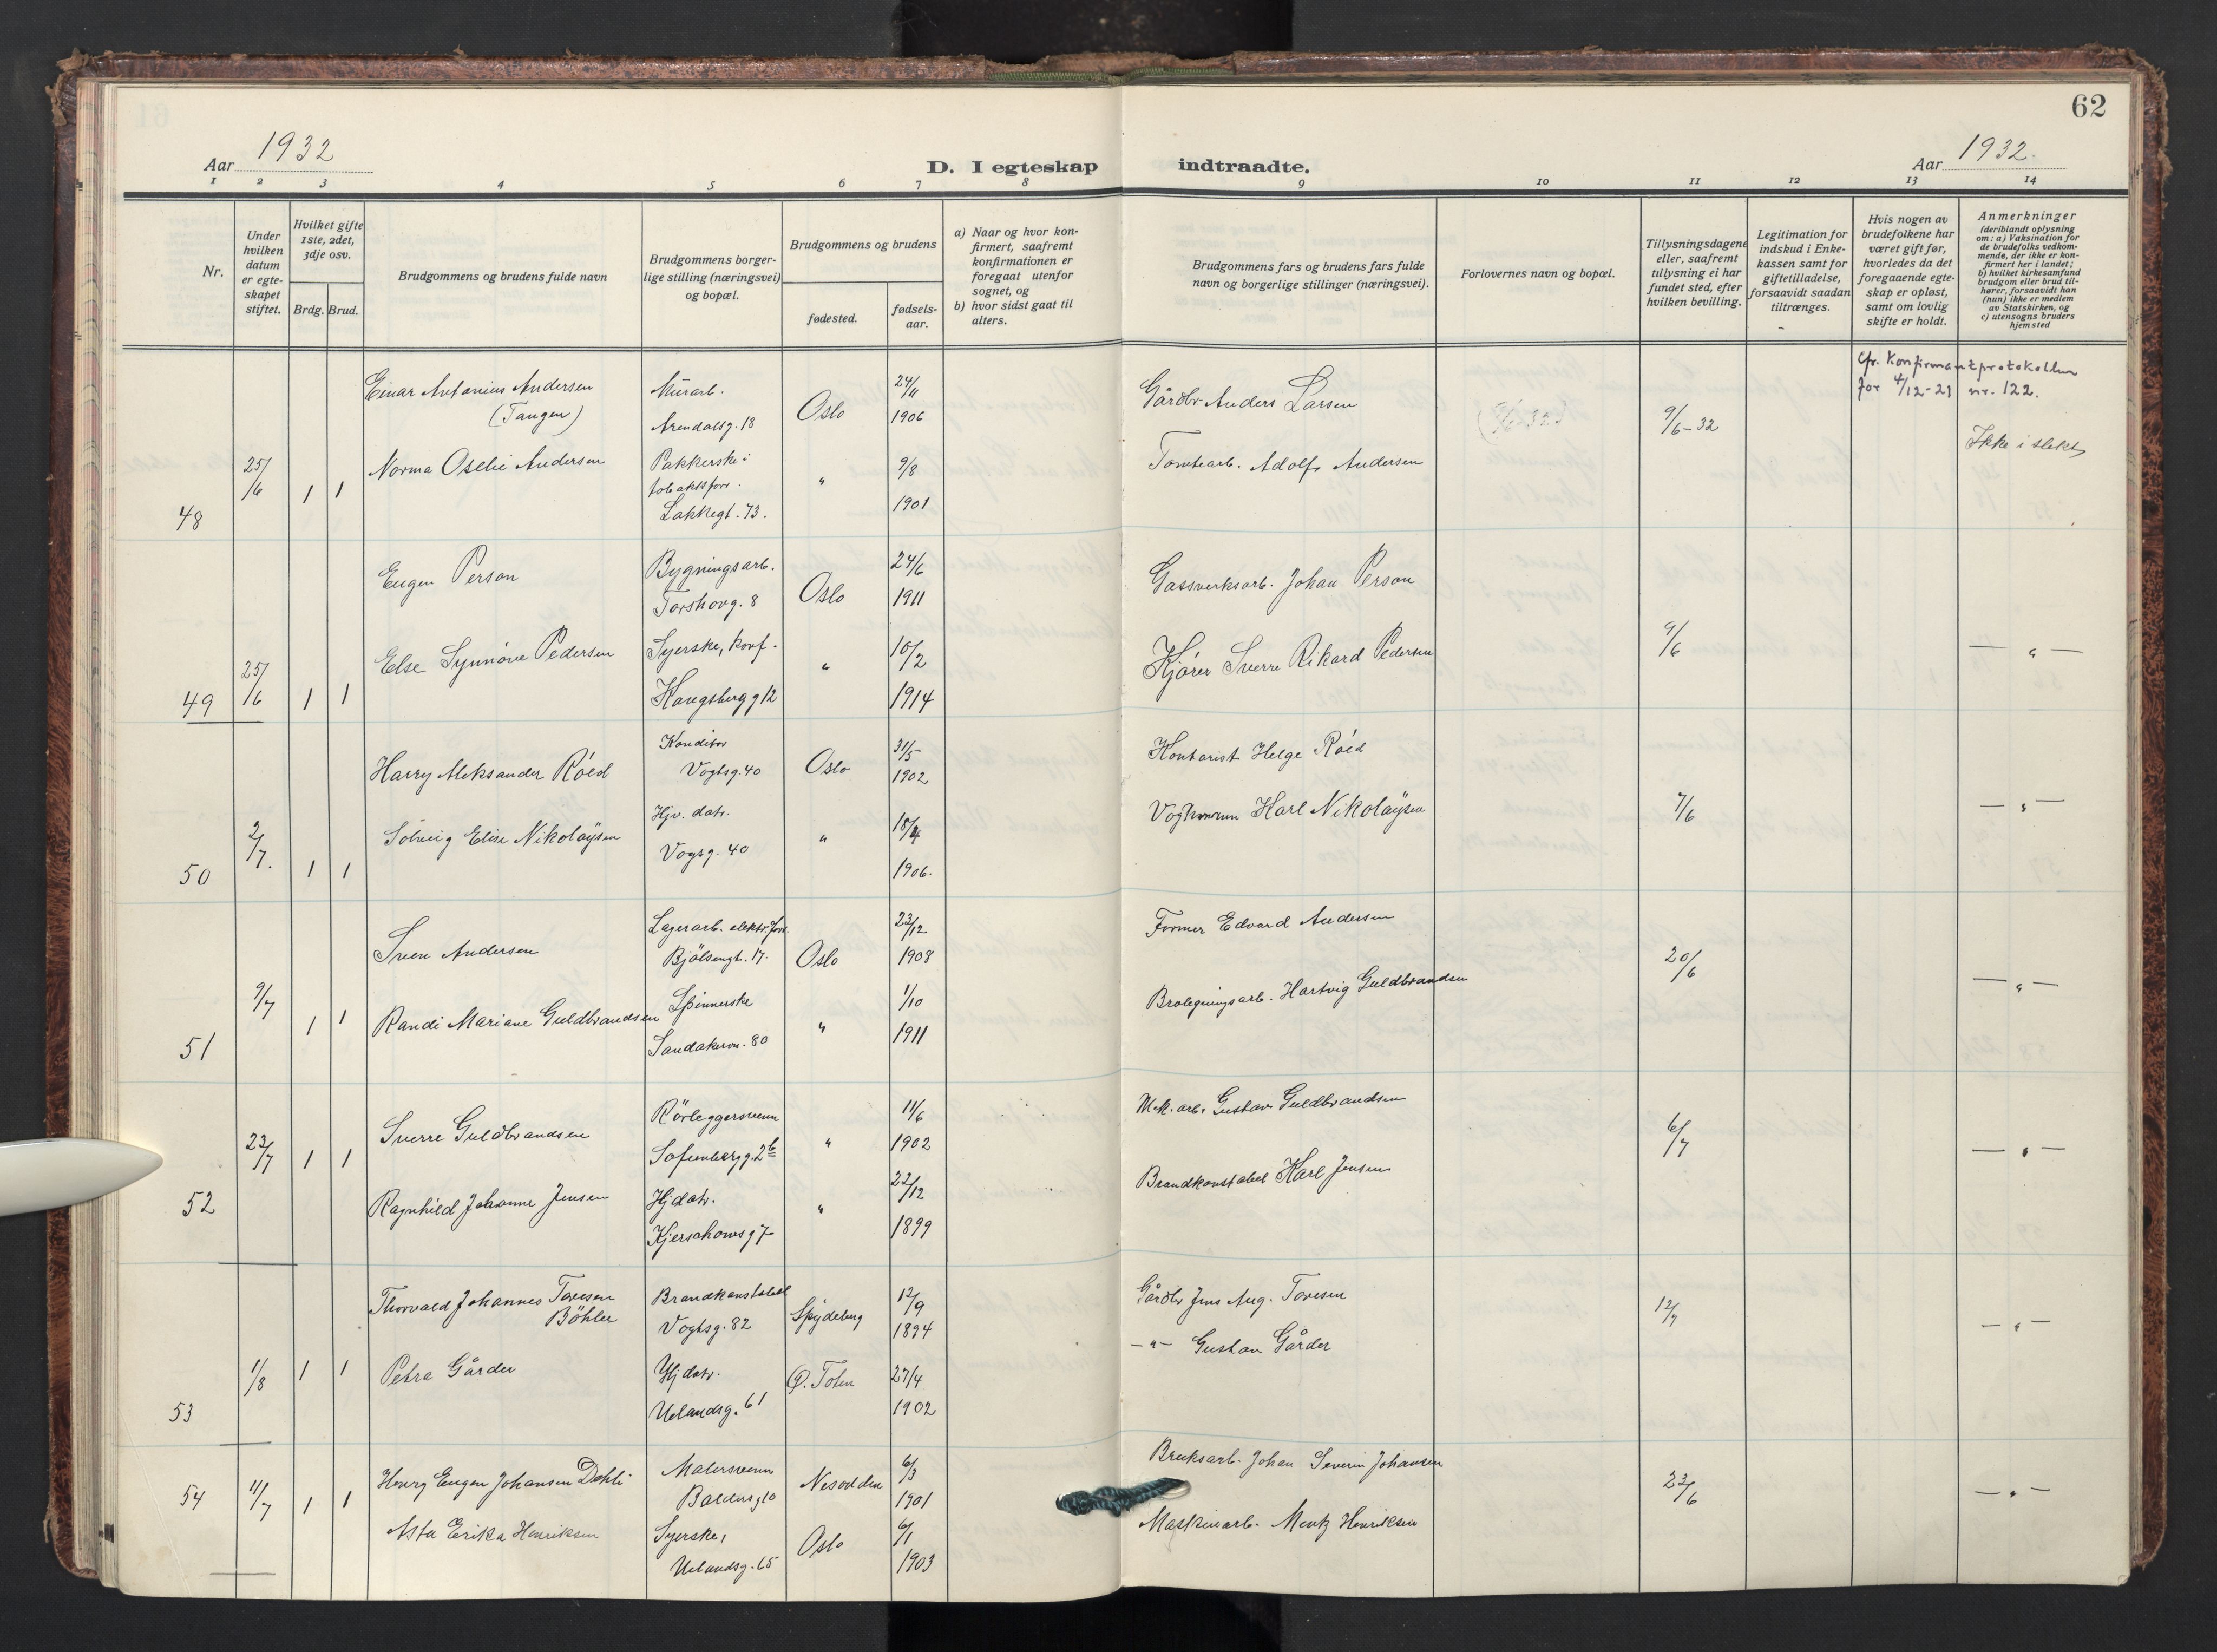 62
Aar 1932
D. I egteskap indtraadte.
Aar 1932.
1 2 3 4 5 6 7 8 9 10 11 12 13 14
Nr.
Under
hvilken
datum
er egte-
skapet
stiftet.
Hvilket gifte
1ste, 2det,
3dje osv.
Brdg. Brud.
Brudgommens og brudens fulde navn
Brudgommens borger-
lige stilling (næringsvei)
og bopæl.
Brudgommens og brudens
fødested.
fødsels-
aar.
a) Naar og hvor kon-
firmert, saafremt
konfirmationen er
foregaat utenfor
sognet, og
b) hvor sidst gaat til
alters.
Brudgommens fars og brudens fars fulde
navn og borgerlige stillinger (næringsvei).
Forlovernes navn og bopæl.
Tillysningsdagene
eller, saafremt
tillysning ei har
fundet sted, efter
hvilken bevilling.
Legitimation for
indskud i Enke-
kassen samt for
giftetilladelse,
forsaavidt saadan
tiltrænges.
Hvis nogen av
brudefolkene har
været gift før,
hvorledes da det
foregaaende egte-
skap er opløst,
samt om lovlig
skifte er holdt.
Anmerkninger
(deriblandt oplysning
om: a) Vaksination for
de brudefolks vedkom-
mende, der ikke er kon-
firmert her i landet;
b) hvilket kirkesamfund
brudgom eller brud til-
hører, forsaavidt han
(hun) ikke er medlem
av Statskirken, og
c) utensogns bruders
hjemsted
48
25/6
1 1
Einar Antonius Andersen
(Tangen)
Murarb.
Arendalsg. 18
Oslo
24/11
1906
Gårdbr. Anders Larsen
9/6-32
cfr. Konfirmantprotokollen
for 4/12-21 nr. 122.
Norma Oselie Andersen
Pakkerske i
tobakkforr.
Lakkegt. 73.
"
9/8
1901
Tomtearb. Adolf Andersen
Ikke i slekt
49
25/6
1 1
Eugen Person
Bygningsarb.
Torshovg. 8
Oslo
24/6
1911
Gassverksarb. Johan Person
9/6
— " —
Else Synnöve Pedersen
Syerske, konf.
Kongsbergg 12
"
10/2
1914
Kjörer Sverre Rikard Pedersen
50
2/7.
1 1
Harry Aleksander Röed
Konditor
Vogtsg. 40
Oslo
31/5
1902
Kontorist Helge Röed
7/6
— " —
Solveig Elise Nikolaysen
Hjv. datr.
Vogsg. 40
"
1906.
Vognmann Karl Nikolaysen
51
9/7
1 1
Sven Andersen
Lagerarb. elektr. forr.
Bjölsengt. 17.
Oslo
23/12
1908
Former Edvard Andersen
20/6
— " —
Randi Mariane Guldbrandsen
Spinnerske
Sandakervn. 80
"
1/10
1911
Brolegningsarb. Hartvig Guldbrandsen
52
23/7
1 1
Sverre Guldbrandsen
Rörleggersvenn
Sofienbergg. 2b
"
11/6
1902
Mek. arb. Gustav Guldbrandsen
6/7
— " —
Ragnhild Johanne Jensen
Hj datr.
Kjerschowsg 7
"
22/12
1899
Brandkonstabel Karl Jensen
53
1/8
1 1
Thorvald Johannes Toresen
Böhler
Brandkonstabel
Vogtsg. 82
Spydeberg
12/9
1894
Gårdbr Jens Aug. Toresen
12/7
— " —
Petra Gårder
Hj datr.
Uelandsg. 61
Ø. Toten
27/4
1902
— " — Gustav Gårder
54
11/7
1 1
Henry Eugen Johansen Dehli
Malersvenn
Baldersg 10
Nesodden
6/3
1901
Bruksarb. Johan Severin Johansen
23/6
— " —
Asta Erika Henriksen
Syerske,
Uelandsg. 65
Oslo
6/1
1903
Maskinarb. Mentz Henriksen